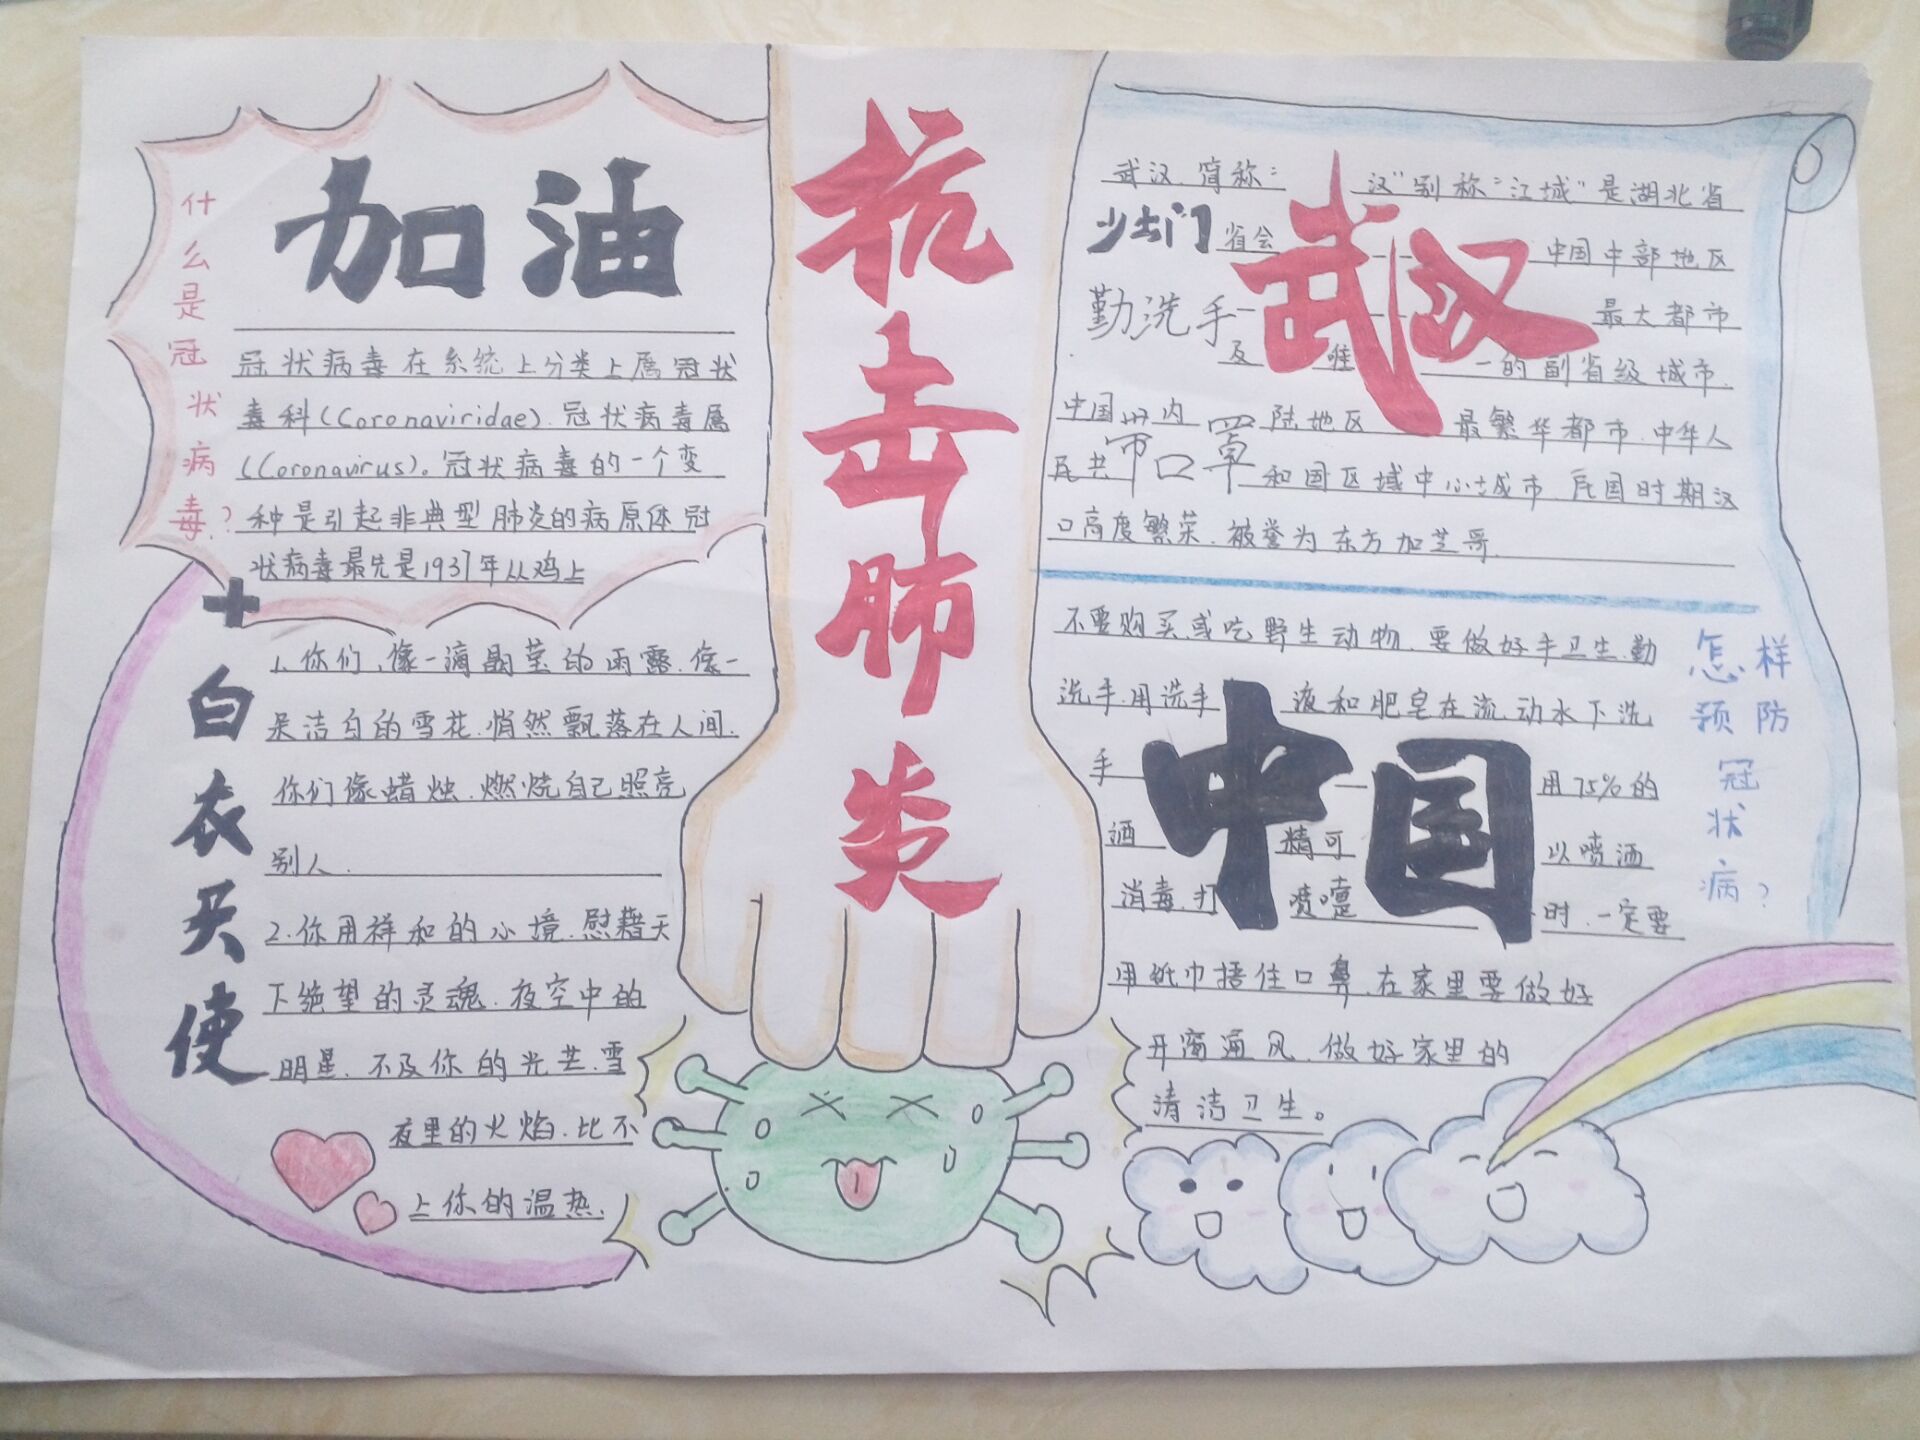 加油
什么是冠状病毒?
冠状病毒在系统上分类上属冠状
毒科(Coronaviridae).冠状病毒属
(Coronavirus)。冠状病毒的一个变
种是引起非典型肺炎的病原体冠
状病毒最先是1937年从鸡上
+白衣天使
1.你们,像一滴晶莹的雨露.像一
朵洁白的雪花.悄然飘落在人间.
你们像蜡烛.燃烧自己照亮
别人.
2.你用祥和的心境.慰藉天
下绝望的灵魂.夜空中的
明星.不及你的光芒.雪
夜里的火焰.比不
上你的温热.
抗击肺炎
武汉
武汉.简称“汉”别称“江城”是湖北省
省会 中国中部地区
最大都市
及唯一的副省级城市.
中国 内陆地区最繁华都市.中华人
民共和国区域中心城市.民国时期汉
口高度繁荣.被誉为东方加芝哥.
少出门
勤洗手
带口罩
中国
怎样预防冠状病?
不要购买或吃野生动物.要做好手卫生.勤
洗手.用洗手液和肥皂在流动水下洗
手 用75%的
酒精可以喷洒
消毒.打喷嚏时.一定要
用纸巾捂住口鼻.在家里要做好
开窗通风.做好家里的
清洁卫生。